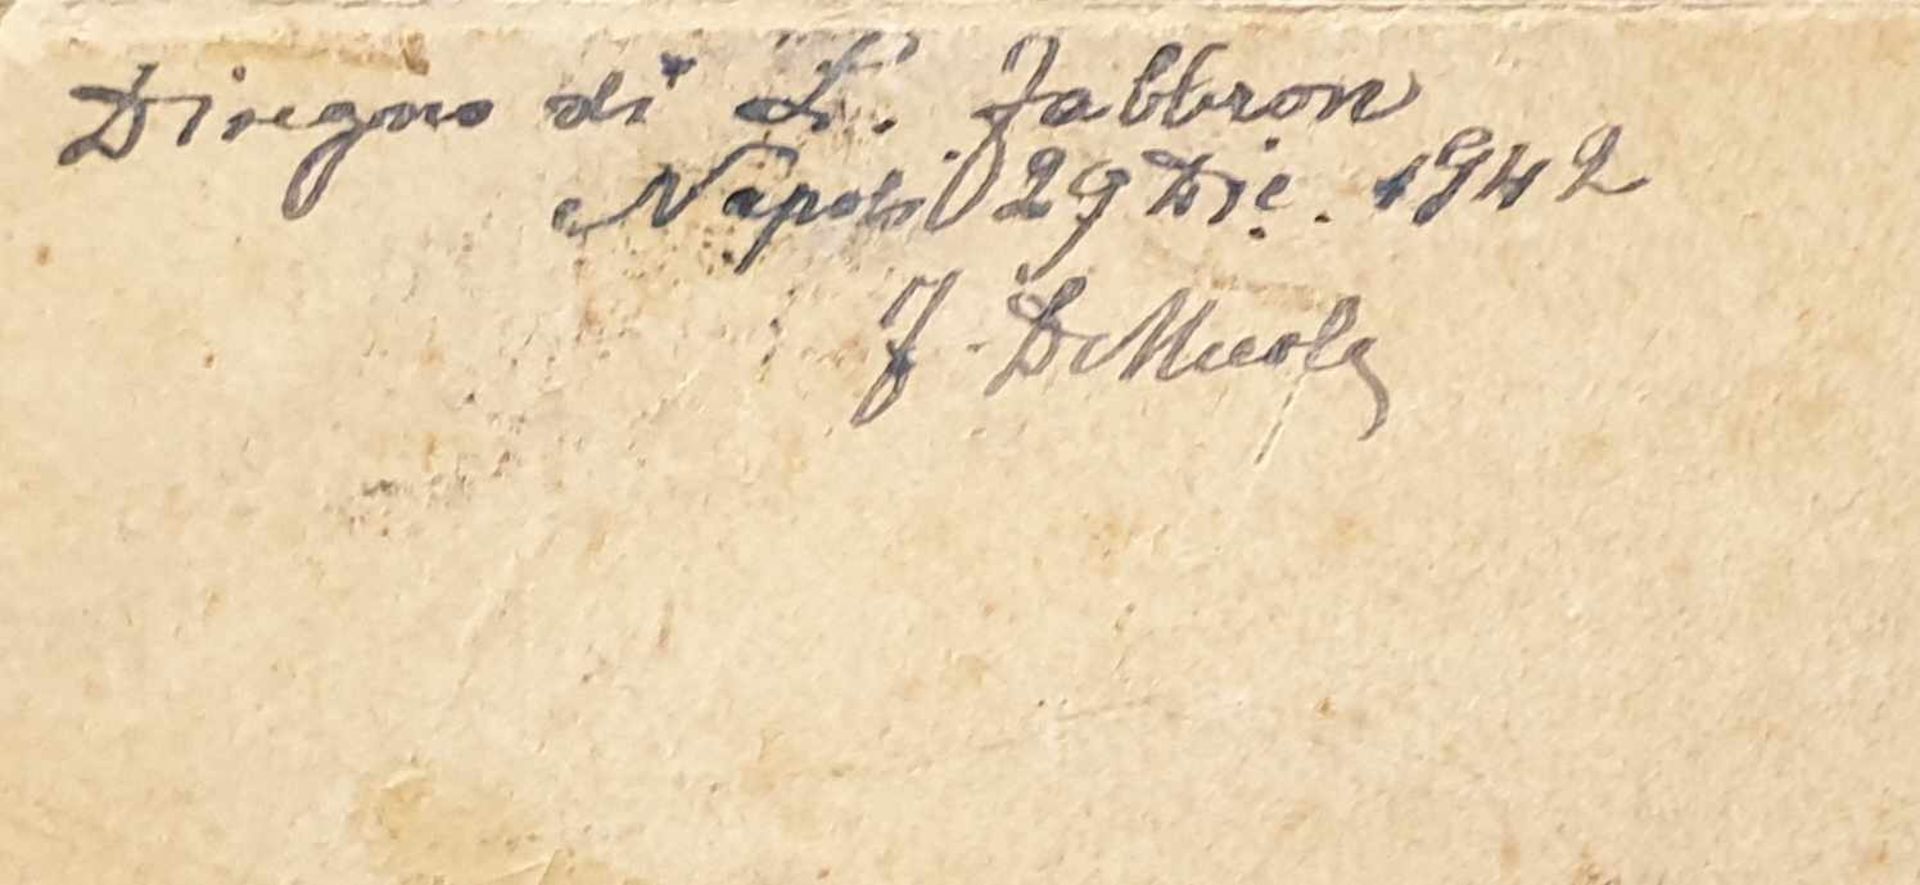 Disegno di L. Fabbron
Napoli 29 Dic. 1942
F. De Nicola